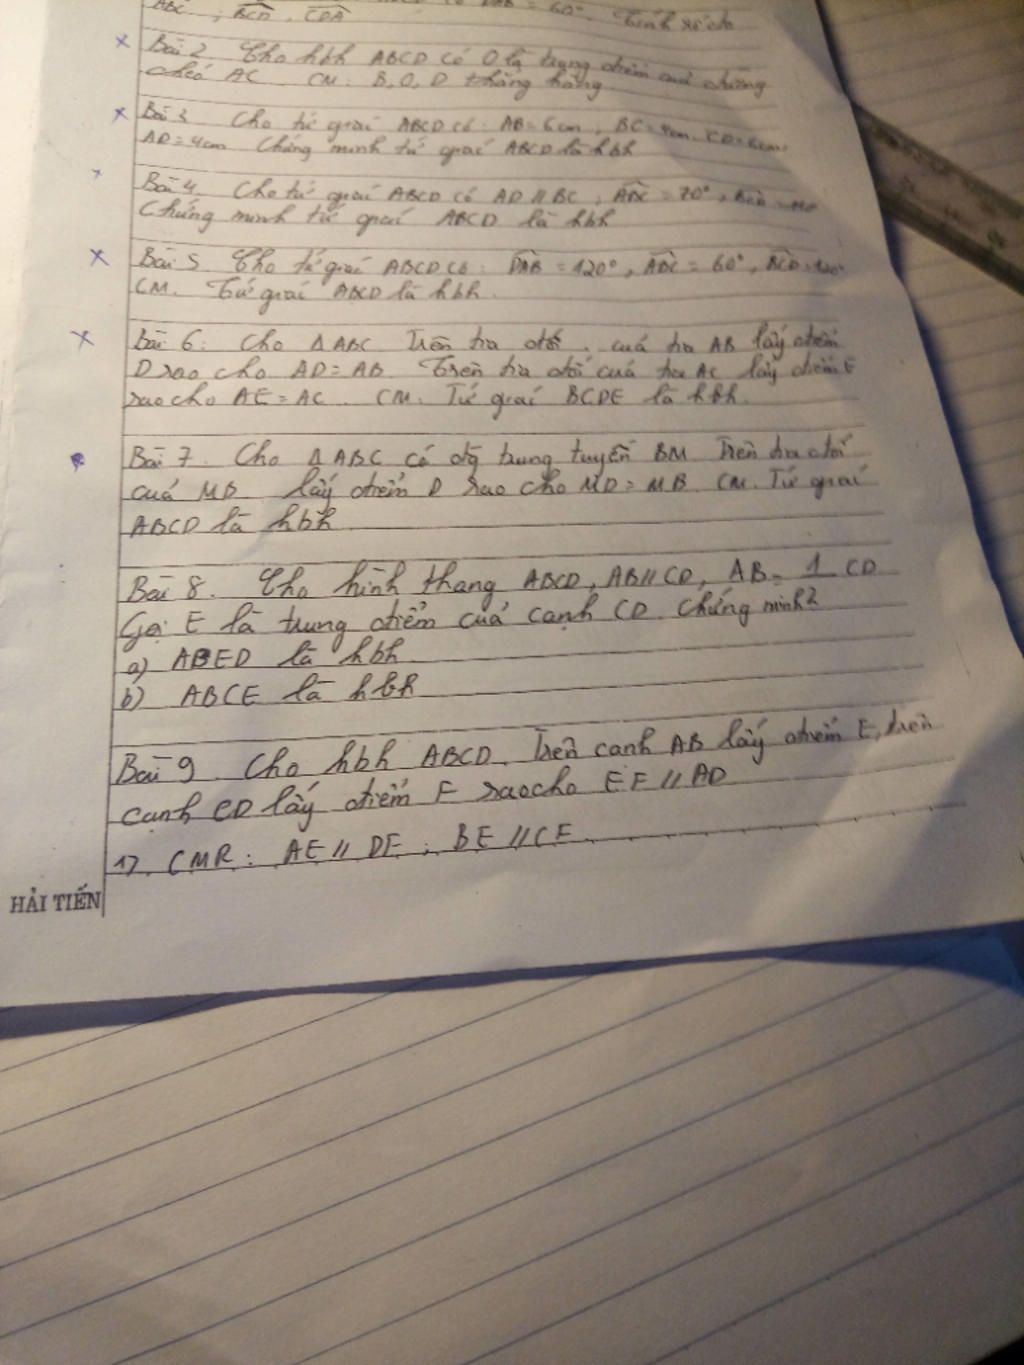 ABC ; BCD , CDA = 60°. Tính số đo
Bài 2. Cho hbh ABCD có O là trung điểm của đường
chéo AC. CM: B, O, D thẳng hàng.
Bài 3. Cho tứ giác ABCD có: AB = 6cm, BC = 4cm, CD = 6cm,
AD = 4cm. Chứng minh tứ giác ABCD là hbh
Bài 4. Cho tứ giác ABCD có AD // BC, ADC = 70°,
Chứng minh tứ giác ABCD là hbh
Bài 5. Cho tứ giác ABCD có: DAB = 120°, ADC = 60°, BCD = 120°
CM. Tứ giác ABCD là hbh.
Bài 6: Cho Δ ABC. Trên tia đối của tia AB lấy điểm
D sao cho AD = AB. Trên tia đối của tia AC lấy điểm E
sao cho AE = AC. CM. Tứ giác BCDE là hbh.
Bài 7. Cho Δ ABC có đg trung tuyến BM. Trên tia đối
của MB lấy điểm D sao cho MD = MB. CM. Tứ giác
ABCD là hbh
Bài 8. Cho hình thang ABCD, AB // CD, AB = 1 CD
Gọi E là trung điểm của cạnh CD. Chứng minh 2
a) ABED là hbh
b) ABCE là hbh
Bài 9. Cho hbh ABCD. Trên cạnh AB lấy điểm E, trên
cạnh CD lấy điểm F sao cho EF // AD
1). CMR: AE // DF ; BE // CF
HẢI TIẾN